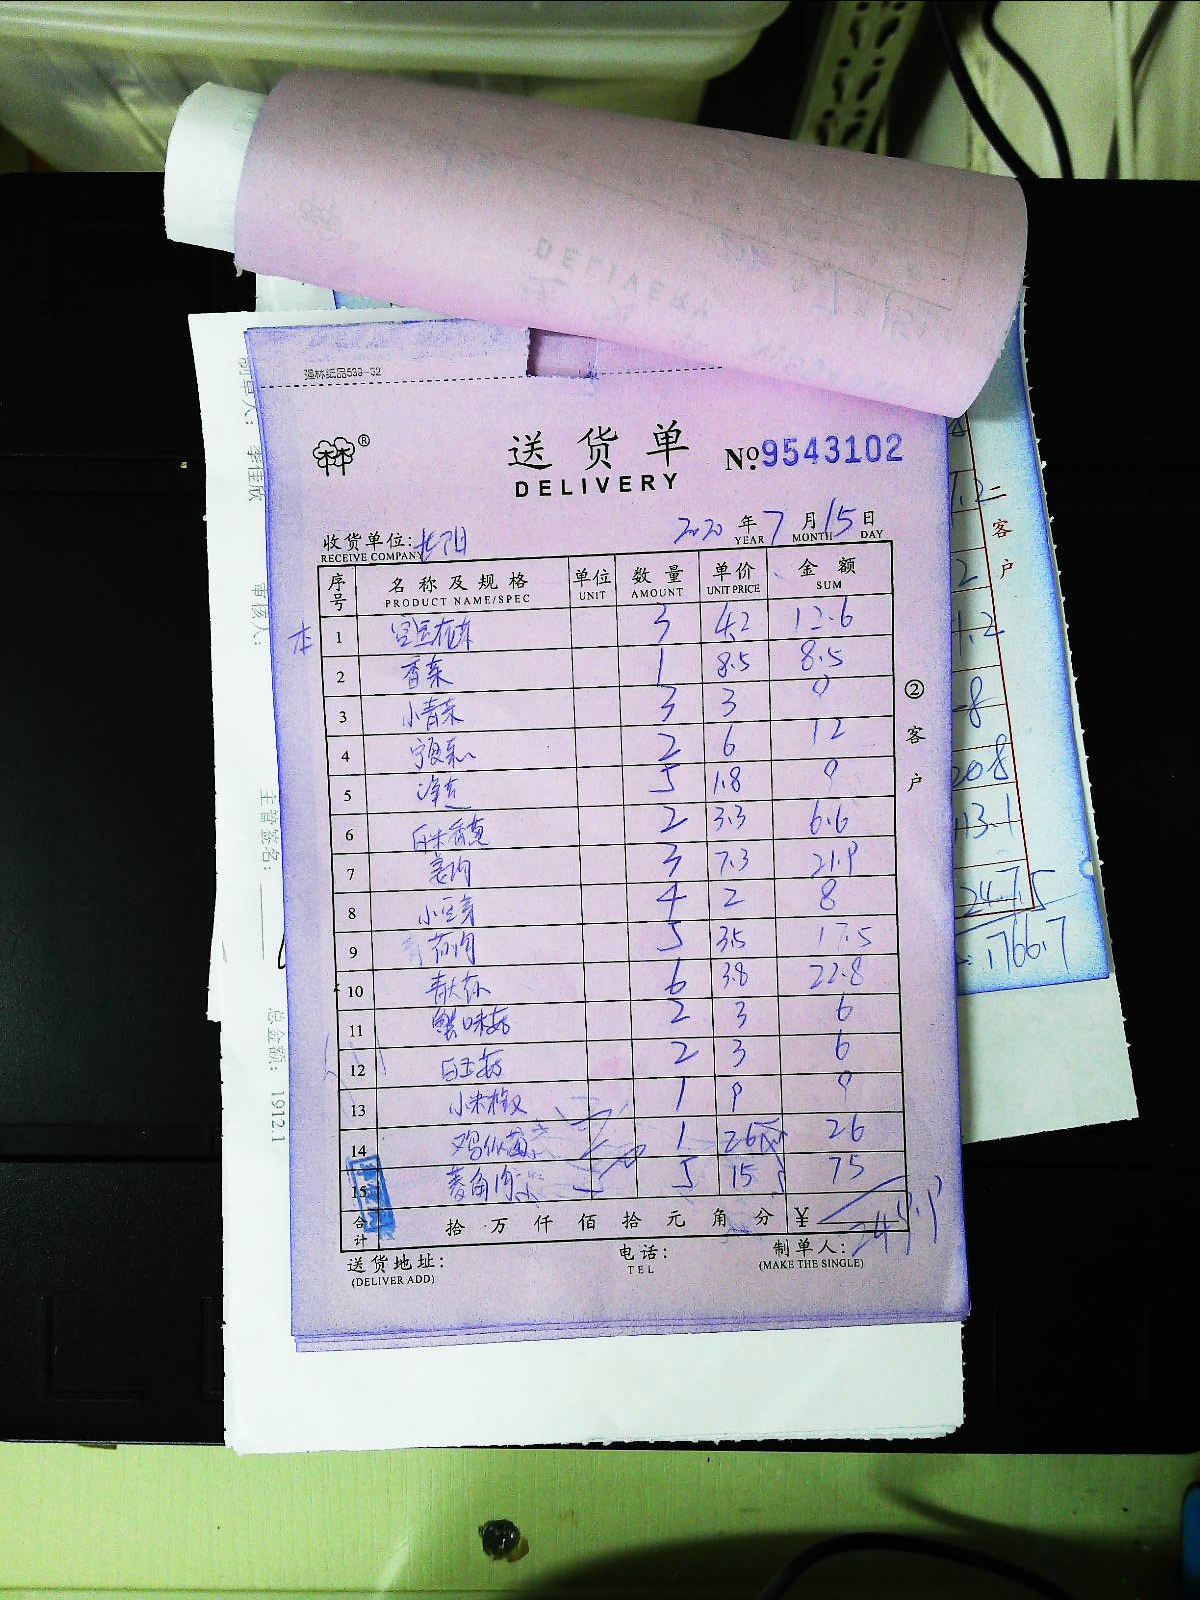 强林纸品539-32
送货单
DELIVERY
No.9543102
收货单位:
RECEIVE COMPANY
2020年7月15日
YEAR MONTH DAY
序号 名称及规格 单位 数量 单价 金额
PRODUCT NAME/SPEC UNIT AMOUNT UNIT PRICE SUM
本 1 3 4.2 12.6
2 香菜 1 8.5 8.5
3 小青菜 3 3 9
4 2 6 12
5 5 1.8 9
6 白米香葱 2 3.3 6.6
7 姜肉 3 7.3 21.9
8 小豆芽 4 2 8
9 5 3.5 17.5
10 6 3.8 22.8
11 蟹味菇 2 3 6
12 白玉菇 2 3 6
13 小米椒 1 9 9
14 鸡纵菌 1 26 26
15 菱角肉 5 15 75
合计 拾万仟佰拾元角分 ¥
送货地址: 电话: 制单人:
(DELIVER ADD) TEL (MAKE THE SINGLE)
②客户
二客户
1.2
-8
208
13.1
247.5
1766.7
制单人: 李佳欣
审核人:
主管签名:
总金额: 1912.1
DELIVERY